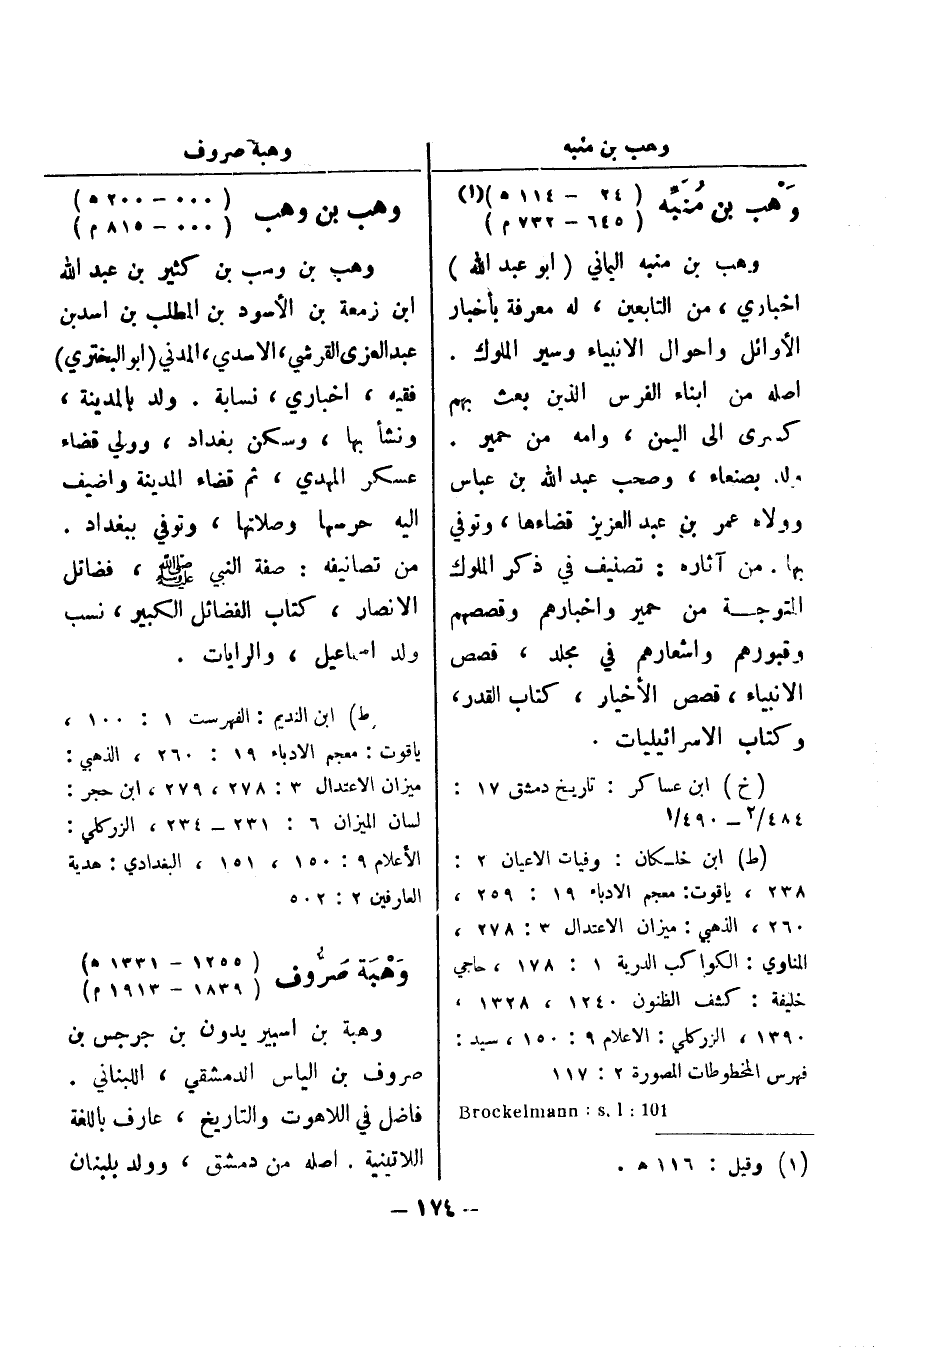 وهب بن منبه
وَهْب بن مُنَبِّه
( ٢٤ – ١١٤ ه )(١)
( ٦٤٥ – ٧٣٢ م )
وهب بن منبه اليماني ( ابو عبد الله )
اخباري ، من التابعين ، له معرفة بأخبار
الأوائل واحوال الانبياء وسير الملوك .
اصله من ابناء الفرس الذين بعث بهم
كسرى الى اليمن ، وامه من حمير .
ولد بصنعاء ، وصحب عبد الله بن عباس
وولاه عمر بن عبد العزيز قضاءها ، وتوفي
بها . من آثاره : تصنيف في ذكر الملوك
المتوجـــة من حمير واخبارهم وقصصهم
وقبورهم واشعارهم في مجلد ، قصص
الانبياء ، قصص الأخيار ، كتاب القدر،
وكتاب الاسرائيليات .
(خ) ابن عساكر : تاريخ دمشق ١٧ :
٤٨٤/٢ – ٤٩٠/١
(ط) ابن خلـكان : وفيات الاعيان ٢ :
٢٣٨ ، ياقوت: معجم الادباء ١٩ : ٢٥٩ ،
٢٦٠ ، الذهبي : ميزان الاعتدال ٣ : ٢٧٨ ،
المناوي : الكواكب الدرية ١ : ١٧٨ ، حاجي
خليفة : كشف الظنون ١٢٤٠ ، ١٣٢٨ ،
١٣٩٠ ، الزركلي : الاعلام ٩ : ١٥٠ ، سيد :
فهرس المخطوطات المصورة ٢ : ١١٧
Brockelmann : s, I : 101
(١) وقيل : ١١٦ ه .
وهبة صروف
وهب بن وهب
( ٠٠٠ – ٢٠٠ ه )
( ٠٠٠ – ٨١٥ م )
وهب بن وهب بن كثير بن عبد الله
ابن زمعة بن الأسود بن المطلب بن اسد بن
عبد العزى القرشي، الاسدي، المدني (ابو البختري)
فقيه ، اخباري ، نسابة . ولد بالمدينة ،
ونشأ بها ، وسكن بغداد ، وولي قضاء
عسكر المهدي ، ثم قضاء المدينة واضيف
اليه حرسها وصلاتها ، وتوفي ببغداد .
من تصانيفه : صفة النبي ﷺ ، فضائل
الانصار ، كتاب الفضائل الكبير ، نسب
ولد اسماعيل ، والرايات .
(ط) ابن النديم : الفهرست ١ : ١٠٠ ،
ياقوت : معجم الادباء ١٩ : ٢٦٠ ، الذهبي :
ميزان الاعتدال ٣ : ٢٧٨ ، ٢٧٩ ، ابن حجر :
لسان الميزان ٦ : ٢٣١ – ٢٣٤ ، الزركلي :
الأعلام ٩ : ١٥٠ ، ١٥١ ، البغدادي : هدية
العارفين ٢ : ٥٠٢
وَهْبَة صَرُّوف
( ١٢٥٥ – ١٣٣١ ه )
( ١٨٣٩ – ١٩١٣ م )
وهبة بن اسبير يدون بن جرجس بن
صروف بن الياس الدمشقي ، اللبناني .
فاضل في اللاهوت والتاريخ ، عارف باللغة
اللاتينية . اصله من دمشق ، وولد بلبنان
– ١٧٤ –